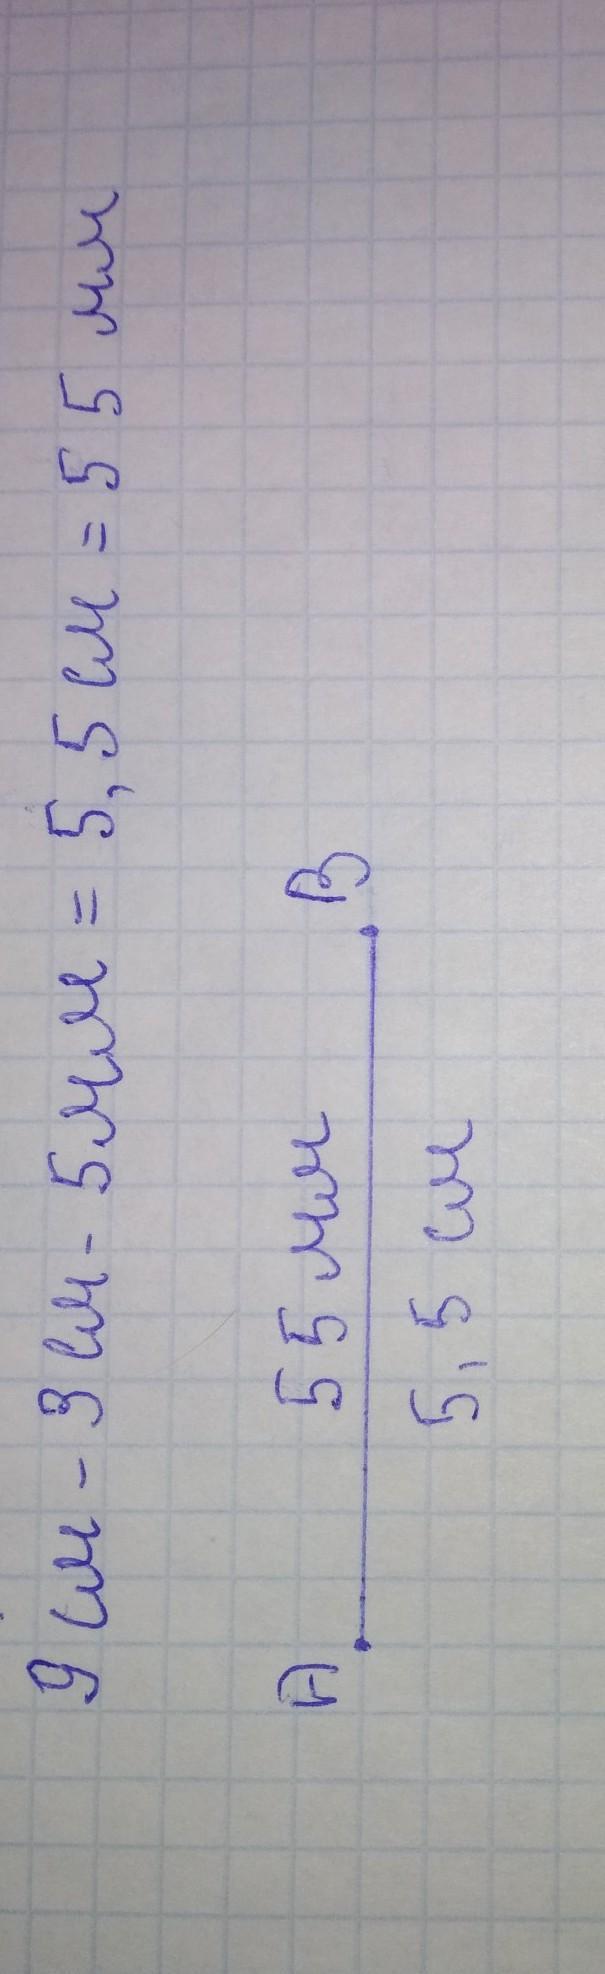 9 см - 3 см - 5 мм = 5,5 см = 55 мм
А 55 мм В
5,5 см